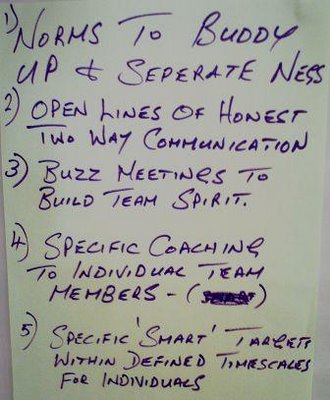 1) NORMS TO BUDDY
UP & SEPERATE NESS
2) OPEN LINES OF HONEST
TWO WAY COMMUNICATION
3) BUZZ MEETINGS TO
BUILD TEAM SPIRIT.
4) SPECIFIC COACHING
TO INDIVIDUAL TEAM
MEMBERS - ( )
5) SPECIFIC 'SMART' TARGETS
WITHIN DEFINED TIMESCALES
FOR INDIVIDUALS